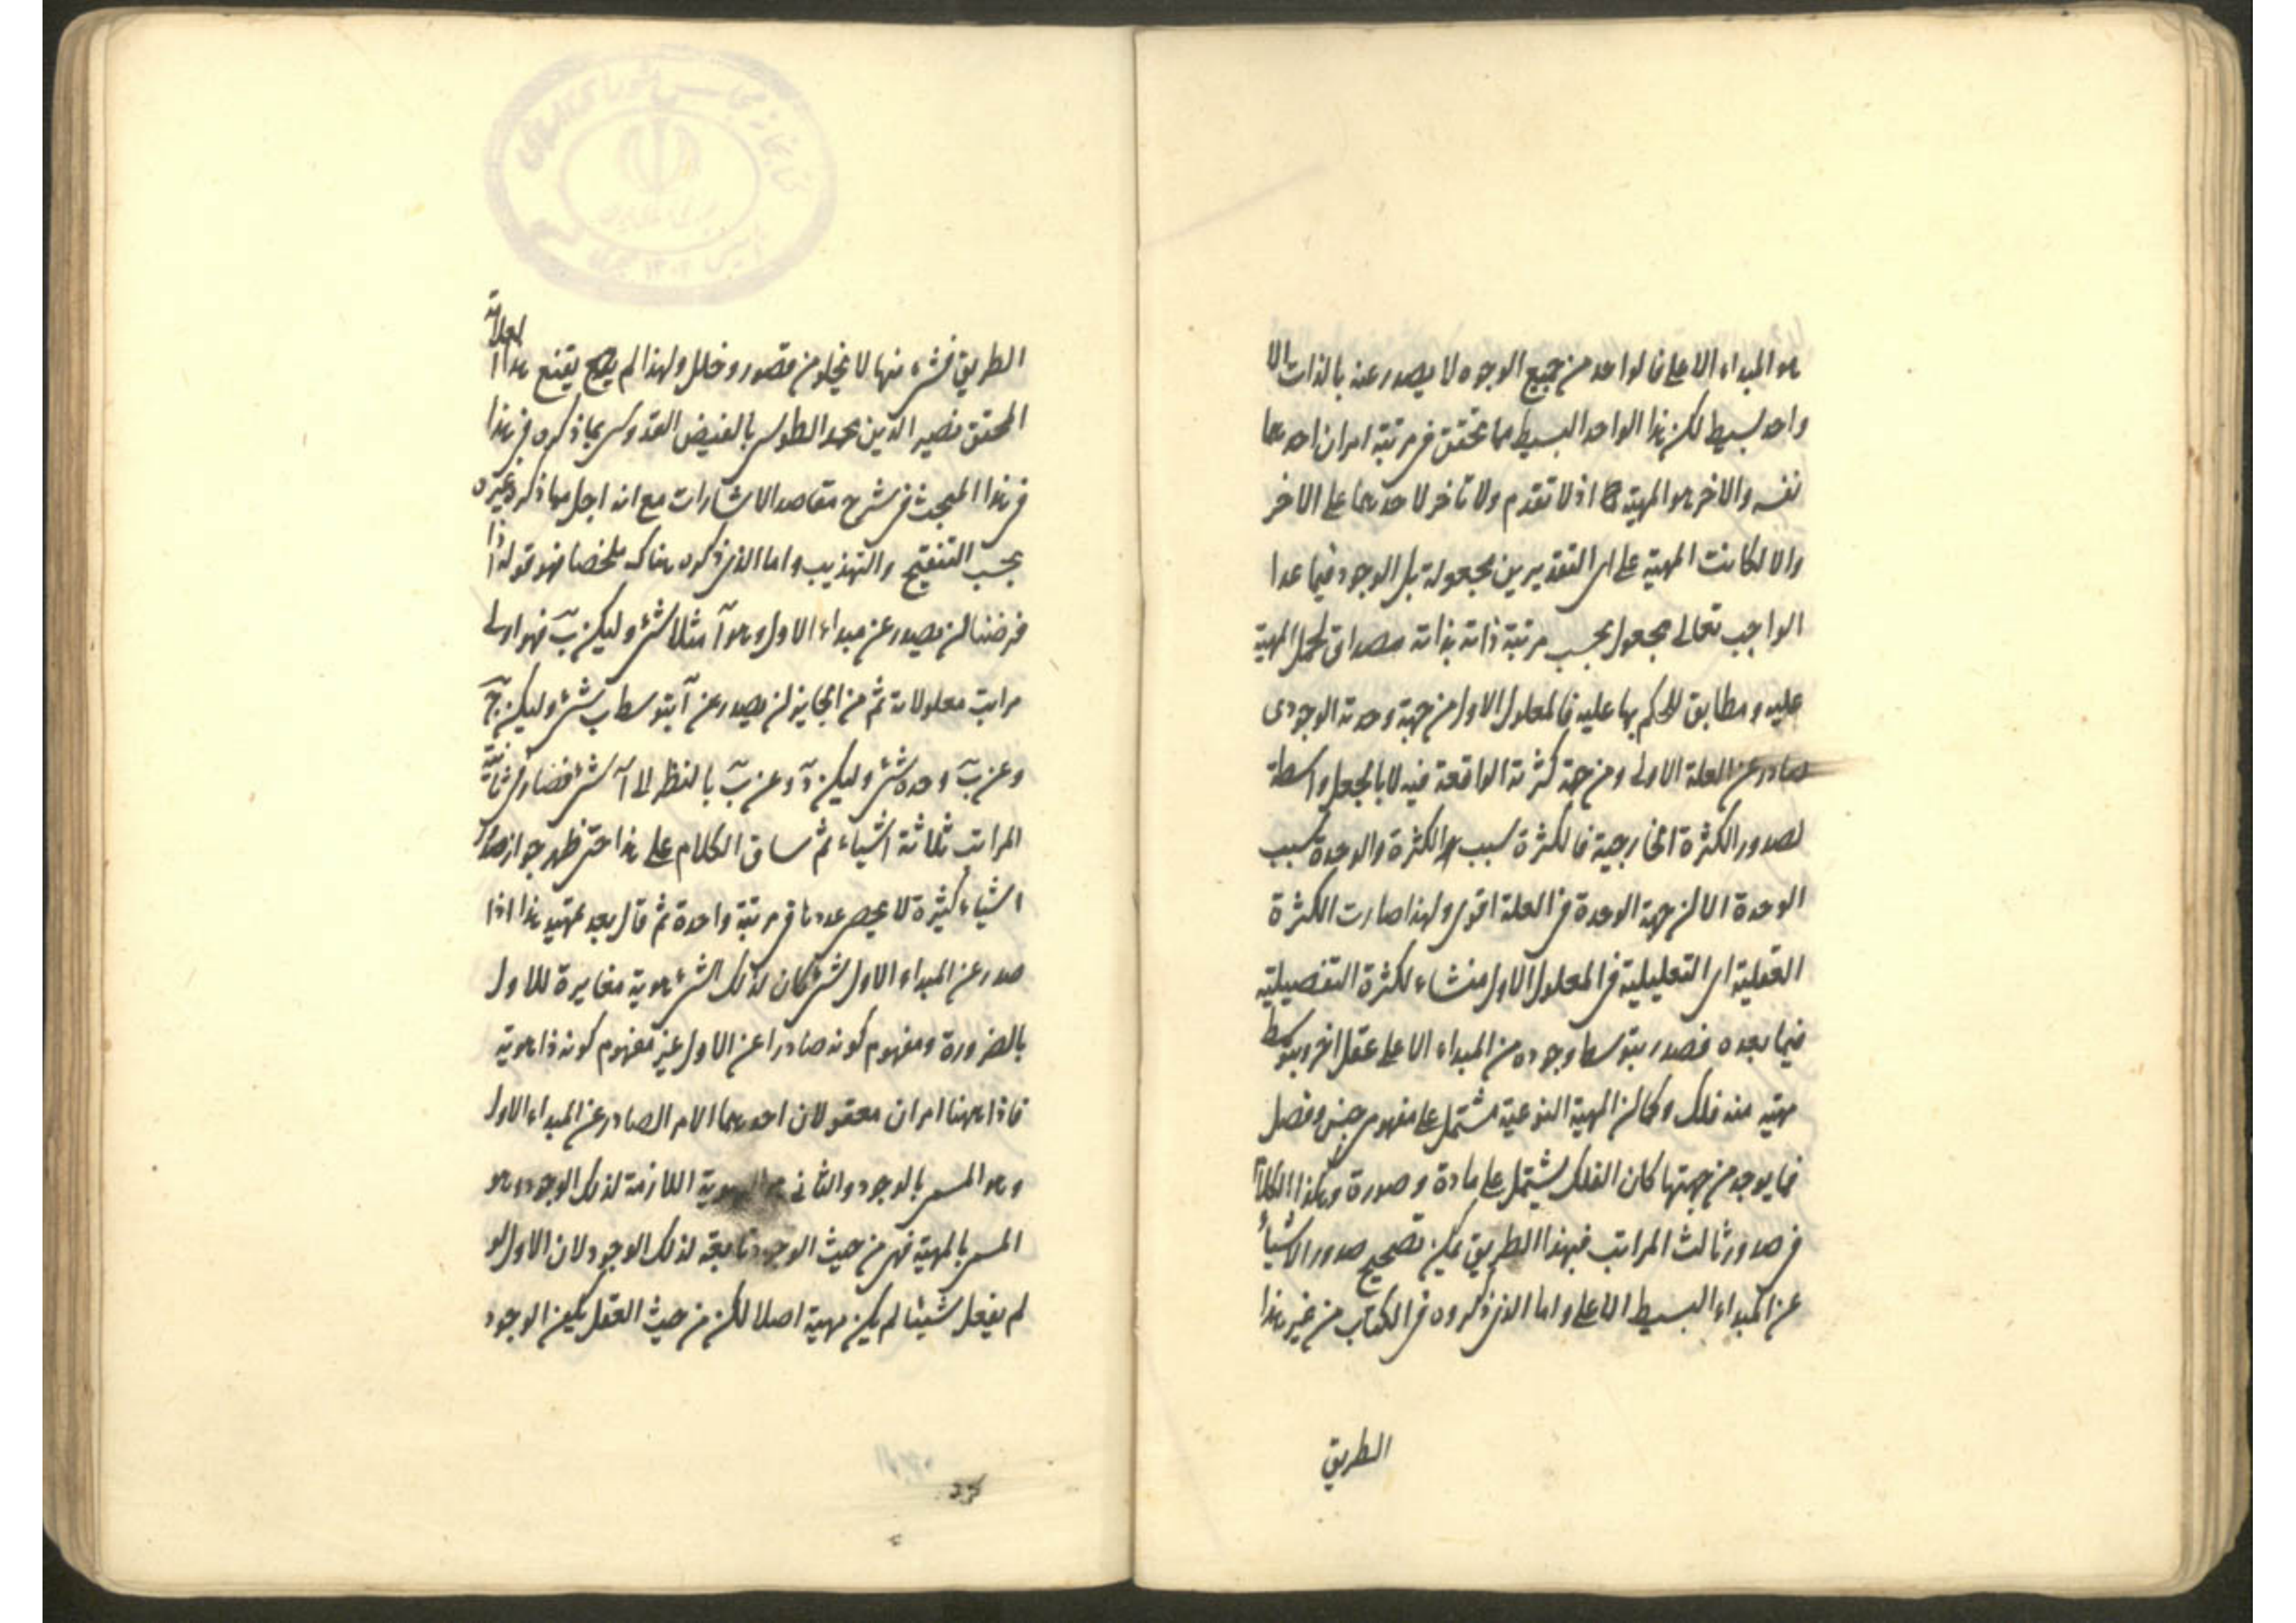 هو المبداء الاعلى فالواحد من جميع الوجوه لا يصدر عنه بالذات الا
واحد بسيط لكن هذا الواحد البسيط مما يتحقق فى مرتبة امران احدهما
نفسه والاخر هو المهية اذ لا تقدم ولا تأخر لاحدهما على الاخر
والا لكانت المهية على اى التقديرين مجعولة بل الوجود فيما عدا
الواجب تعالى مجعول بحسب مرتبة ذاته بذاته مصداق لحمل المهية
عليه و مطابق للحكم بها عليه فالمعلول الاول من جهة وحدته الوجودى
صادر عن العلة الاولى ومن جهة كثرته الواقعة فيه لا بالجعل واسطة
لصدور الكثرة الخارجية فالكثرة سبب الكثرة والوحدة سبب
الوحدة الا ان جهة الوحدة فى العلة اقوى ولهذا صارت الكثرة
العقلية اى التعليلية فى المعلول الاول منشاء لكثرة التفصيلية
فيما بعده فصدر بتوسط وجوده من المبداء الاعلى عقل اخر وبتوسط
مهيته منه فلك وكما ان المهية النوعية مشتمل على مفهومى جنس وفصل
فما يوجد من جهتها كان الفلك يشتمل على مادة و صورة وهكذا الكلام
فى صدور ثالث المراتب فبهذا الطريق يمكن تصحيح صدور الاشياء
عن المبداء البسيط الاعلى واما الذى ذكروه فى الكتاب من غير هذا
الطريق
الطريق فشىء منها لا يخلو من قصور و خلل ولهذا لم يقنع هذا العلامة
المحقق نصير الدين محمد الطوسى بالفيض القدوسى بما ذكره فى هذا
فى هذا المبحث فى شرح مقاصد الاشارات مع انه اجل مما ذكره غيره
بحسب التنقيح والتهذيب واما الذى ذكره هناك ملخصا فهو قوله اذا
فرضنا ان يصدر عن مبداء الاول وهو آ مثلا شىء وليكن ب فهو اولى
مراتب معلولاته ثم من الجايز ان يصدر عن آ بتوسط ب شىء وليكن ج
وعن ب وحده شىء وليكن د وعن ب بالنظر الى آ شىء فصار فى ثانية
المراتب ثلاثة اشياء ثم ساق الكلام على هذا حتى ظهر جواز صدور
اشياء كثيرة لا يحصى عددها فى مرتبة واحدة ثم قال بعد تمهيد هذا اذا
صدر عن المبداء الاول شىء كان لذلك الشىء هوية مغايرة للاول
بالضرورة ومفهوم كونه صادرا عن الاول غير مفهوم كونه ذا هوية
فاذا ههنا امران معقولان احدهما الامر الصادر عن المبداء الاول
وهو المسمى بالوجود والثانى الهوية اللازمة لذلك الوجود وهو
المسمى بالمهية فهى من حيث الوجود تابعة لذلك الوجود لان الاول لو
لم يفعل شيئا لم يكن مهية اصلا لكن من حيث العقل يكون الوجود